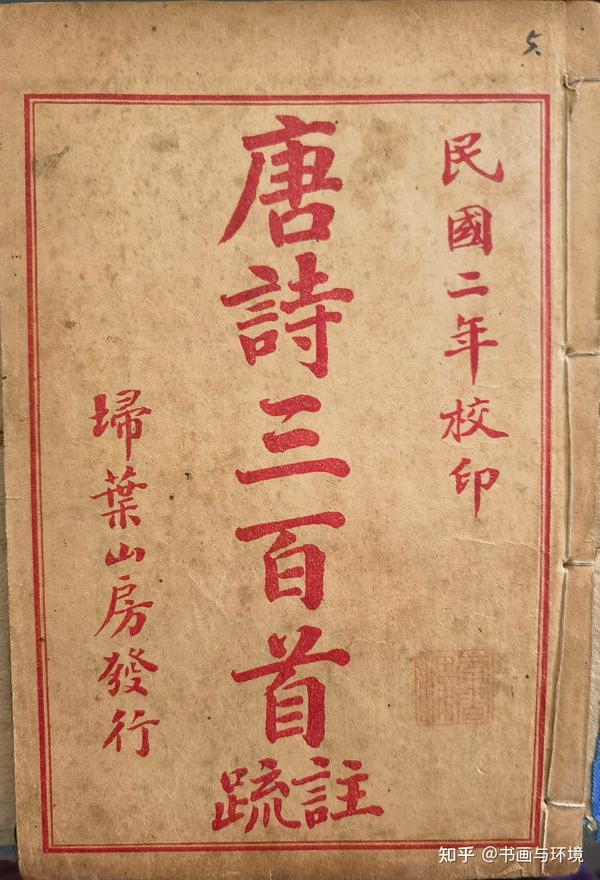 5.
民國二年校印
唐詩三百首
註疏
埽葉山房發行
知乎 @书画与环境